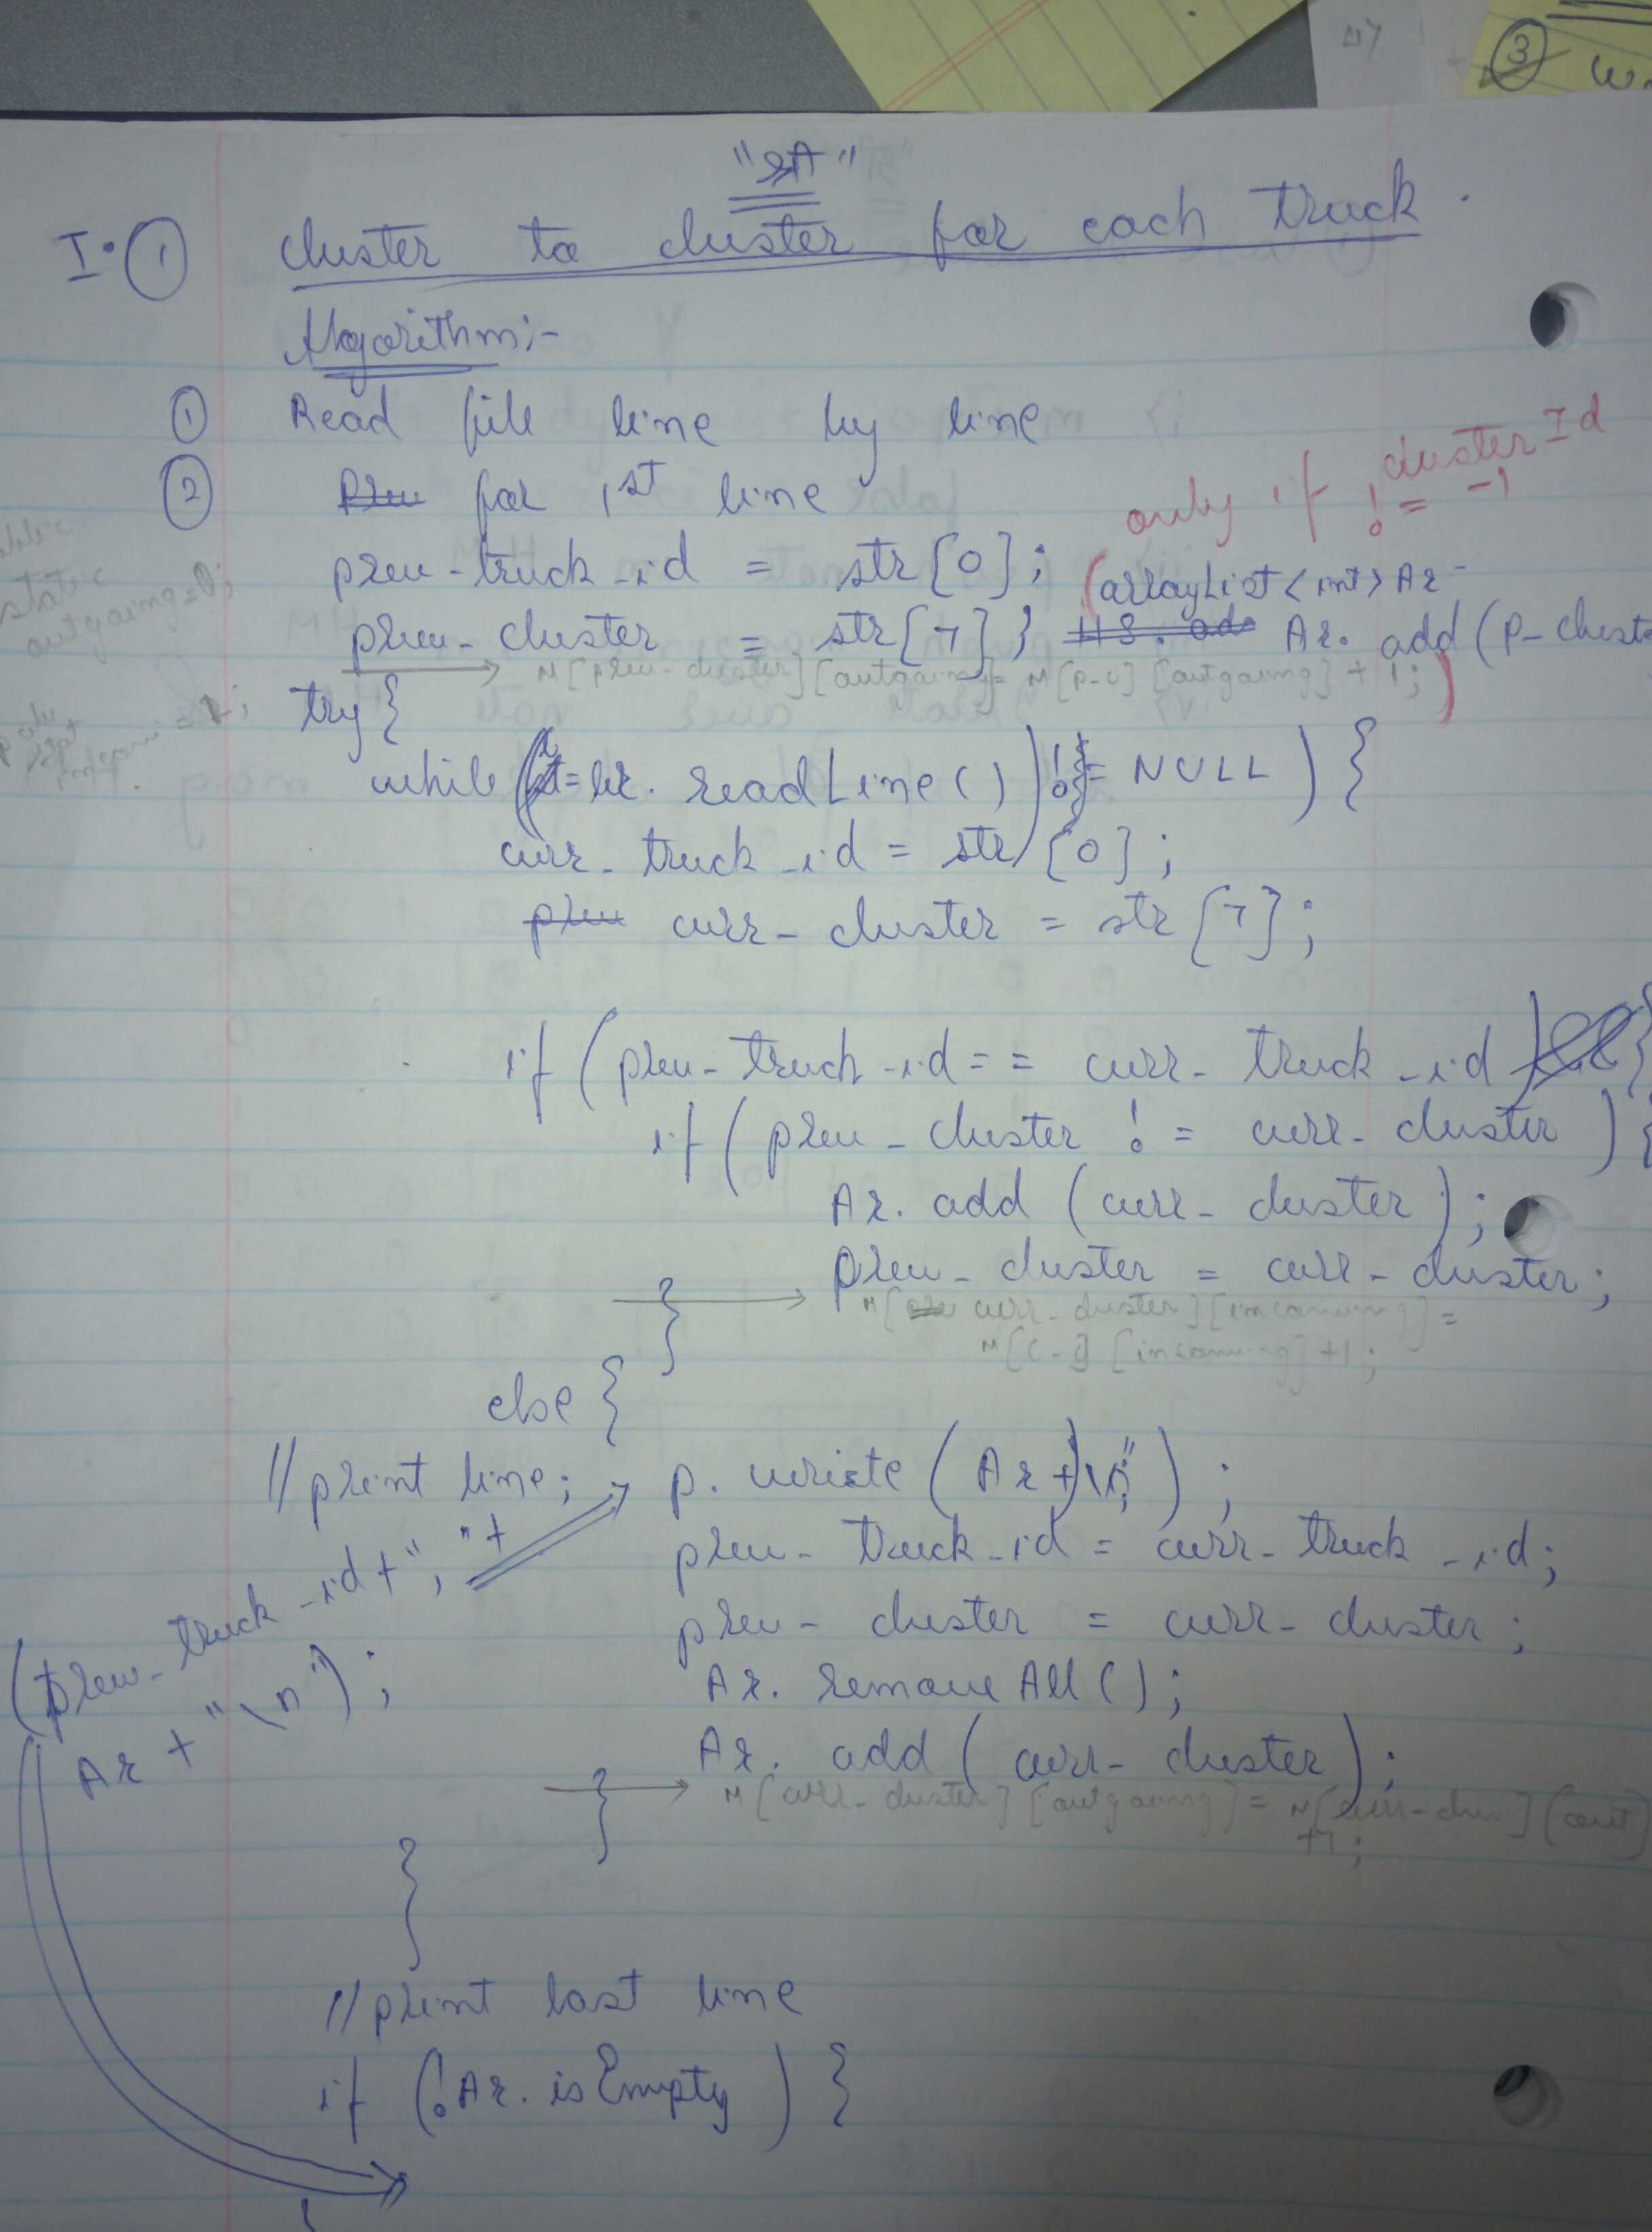 3
"rA"
I. 1 cluster to cluster for each truck.
Algorithm:-
1 Read file line by line
2 Prev for 1st line
only if clusterId != -1
prev-truck-id = str[0]; (arrayList<int> Ar
prev-cluster = str[7]; HS.add Ar. add (p-cluste
M[prev-cluster][outgoing]= M[p-c][outgoing]+1;)
static
outgoing=0;
try {
while((t=br. readLine()) != NULL) {
curr-truck-id = str[0];
prev curr-cluster = str[7];
if (prev-truck-id== curr-truck-id) {
if (prev-cluster != curr-cluster) {
Ar. add (curr-cluster);
prev-cluster = curr-cluster;
} M[prev curr-cluster][incoming]=
M[c-c][incoming]+1;
else {
//print line; p. write (Ar+"\n");
(prev-truck-id+", "+
Ar + "\n");
prev-truck-id = curr-truck-id;
prev-cluster = curr-cluster;
Ar. removeAll();
Ar. add (curr-cluster);
} M[curr-cluster][outgoing]= M[curr-clus][out]
+1;
}
//print last line
if (!Ar. isEmpty) {